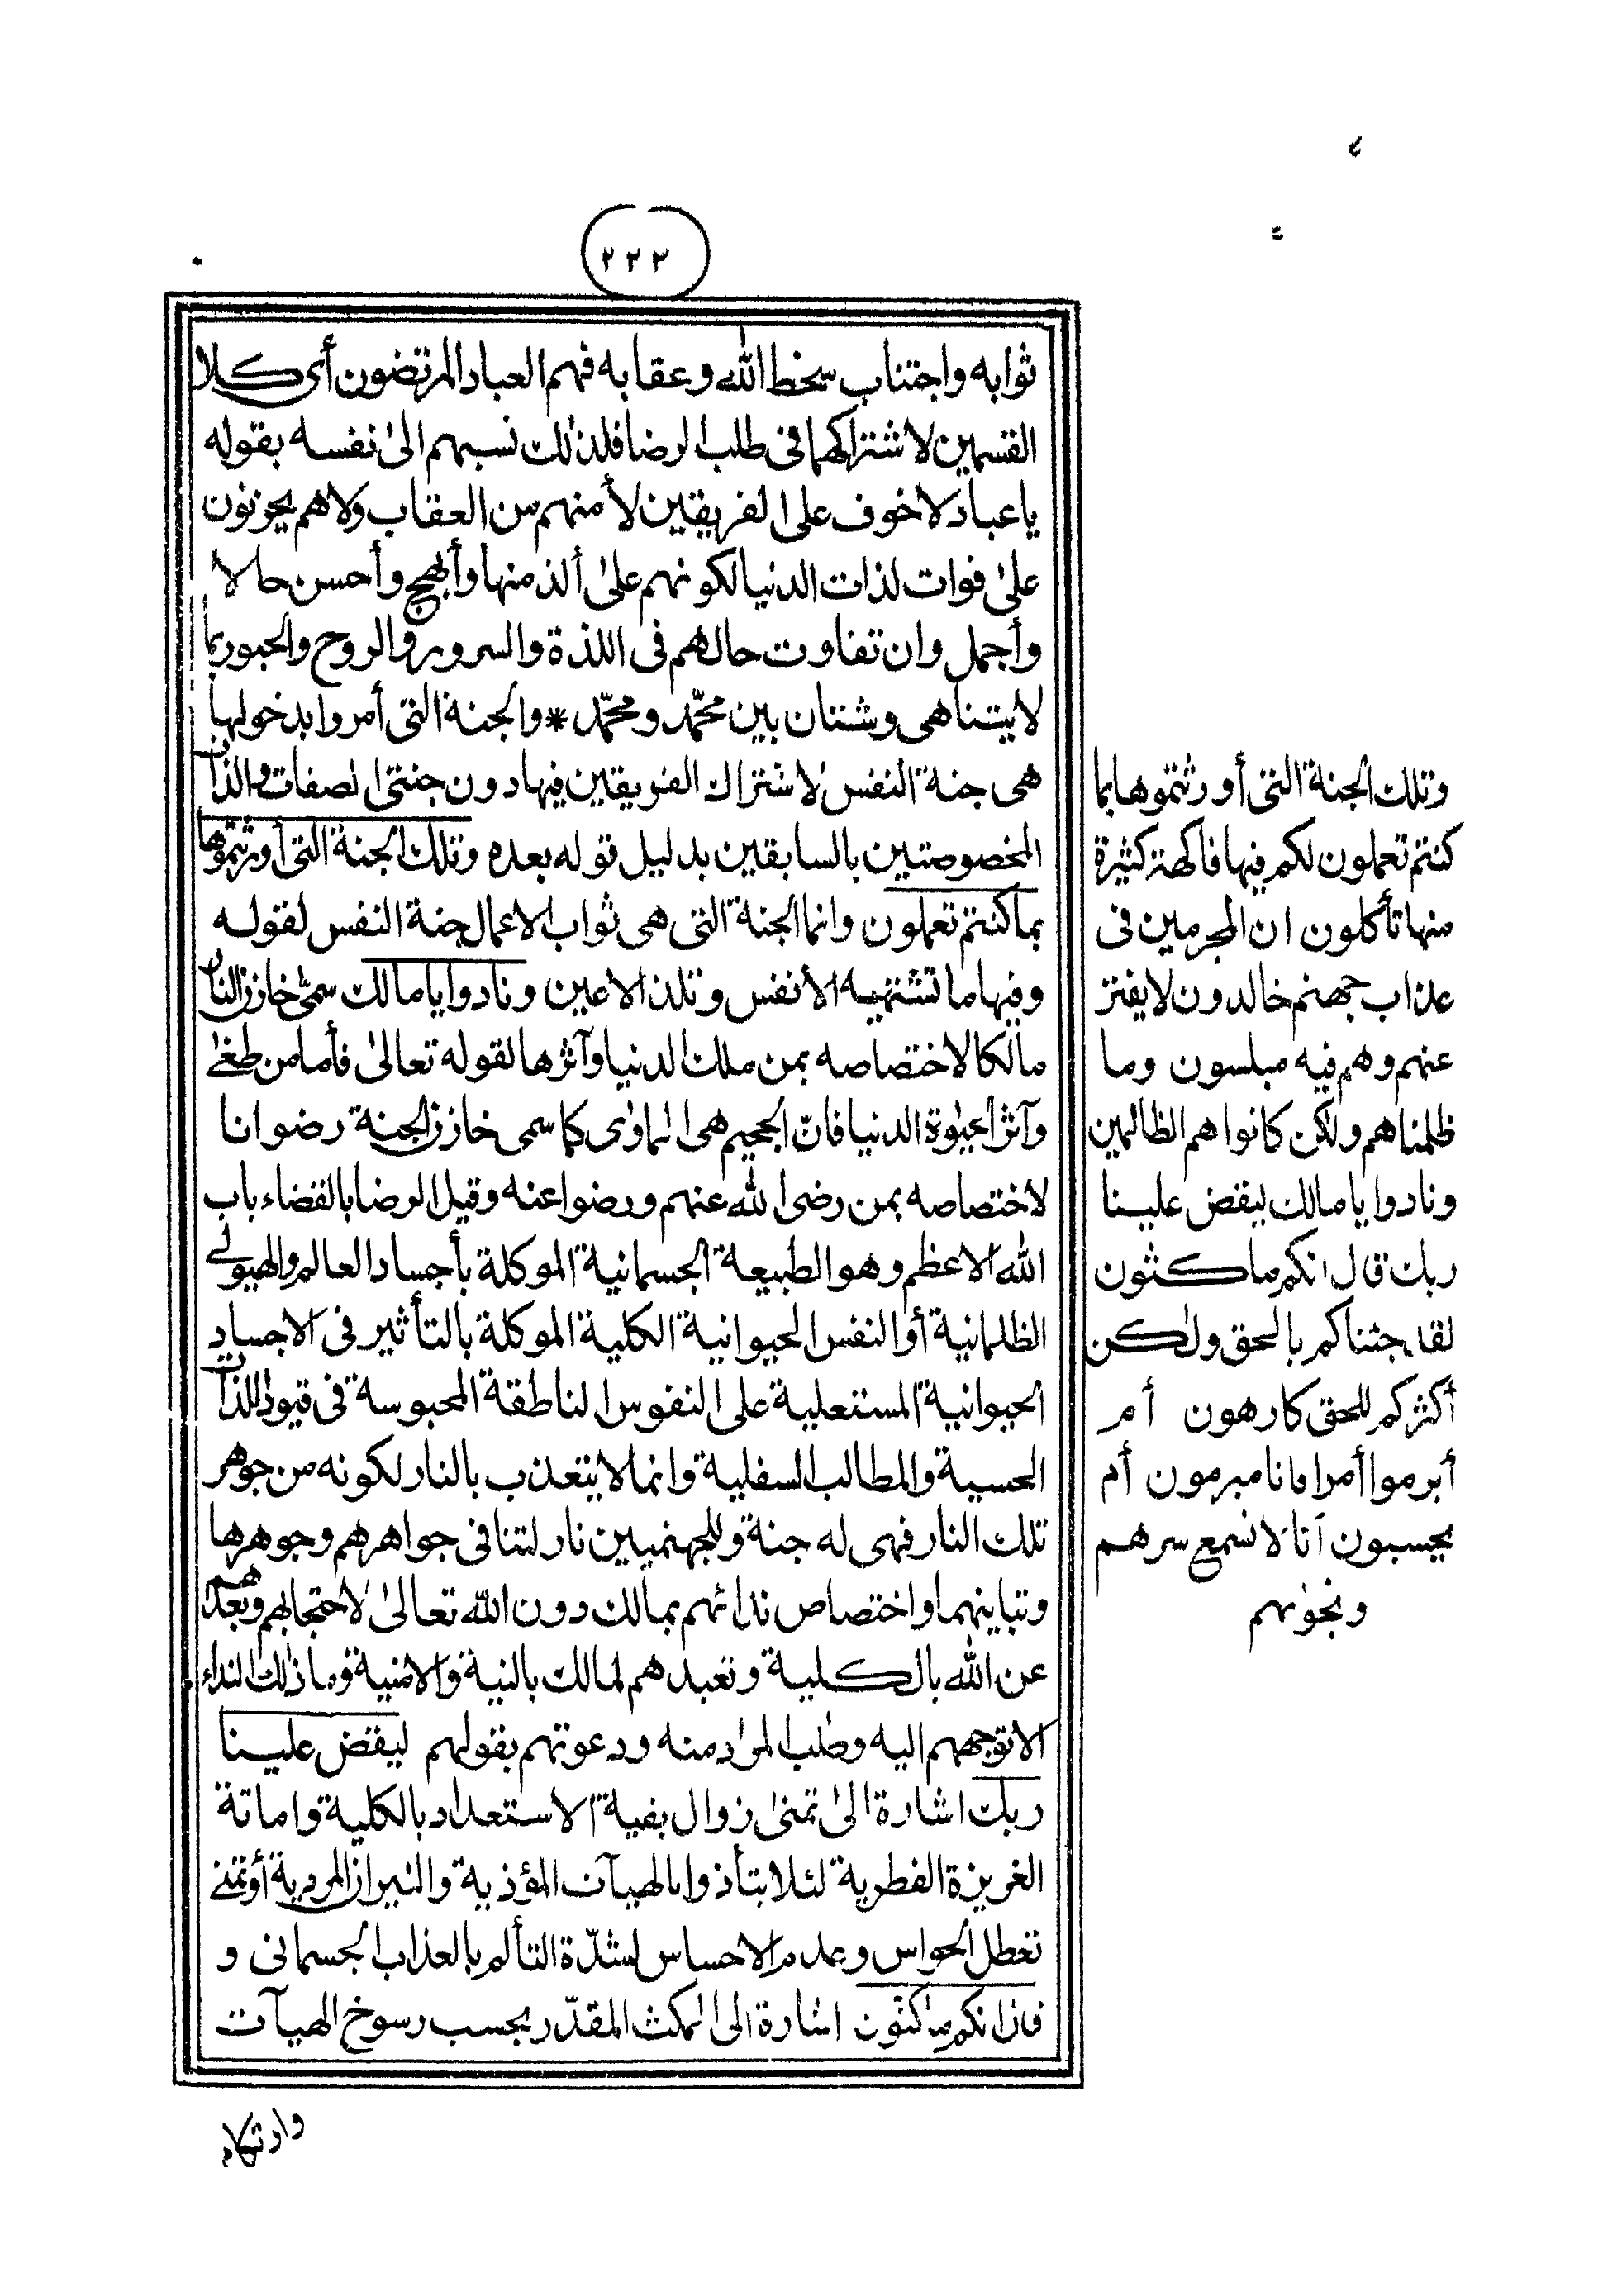 ٢٢٣
ثوابه واجتناب سخط الله وعقابه فهم العباد المرتضون أى كلا
القسمين لاشتراكهما فى طلب الرضا فلذلك نسبهم الى نفسه بقوله
ياعباد لاخوف على الفريقين لأمنهم من العقاب ولاهم يحزنون
على فوات لذات الدنيا لكونهم على ألذ منها وأبهج وأحسن حالا
وأجمل وان تفاوت حالهم فى اللذة والسرور والروح والحبور بما
لايتناهى وشتان بين محمّد ومحمّد * والجنة التى أمروا بدخولها
هى جنة النفس لاشتراك الفريقين فيها دون جنتى الصفات والذات
المخصوصتين بالسابقين بدليل قوله بعده وتلك الجنة التى أورثتموها
بما كنتم تعملون وانما الجنة التى هى ثواب الاعمال جنة النفس لقوله
وفيها ما تشتهيه الأنفس وتلذ الاعين ونادوا يا مالك سمّى خازن النار
مالكا لاختصاصه بمن ملك الدنيا وآثرها لقوله تعالى فأما من طغى
وآثر الحيوة الدنيا فانّ الجحيم هى المأوى كما سمى خازن الجنة رضوانا
لاختصاصه بمن رضى الله عنهم ورضوا عنه وقيل الرضا بالقضاء باب
الله الاعظم وهو الطبيعة الجسمانية الموكلة بأجساد العالم والهيولى
الظلمانية أو النفس الحيوانية الكلية الموكلة بالتأثير فى الاجساد
الحيوانية المستعلية على النفوس الناطقة المحبوسة فى قيود اللذات
الحسية والمطالب السفلية وانما لايتعذب بالنار لكونه من جوهر
تلك النار فهى له جنة وللجهنميين نار لتنافى جواهرهم وجوهرها
وتباينهما واختصاص ندائهم بمالك دون الله تعالى لاحتجابهم وبعدهم
عن الله بالكلية وتعبدهم لمالك بالنية والامنية وما ذلك النداء
الا توجههم اليه وطلب المراد منه ودعوتهم بقولهم ليقض علينا
ربك اشارة الى تمنى زوال بقية الاستعداد بالكلية واماتة
الغريزة الفطرية لئلا يتأذوا بالهيآت المؤذية والنيران المردية أو تمنى
تعطل الحواس وعدم الاحساس لشدّة التألم بالعذاب الجسمانى و
قال انكم ماكثون اشارة الى المكث المقدّر بحسب رسوخ الهيآت
وتلك الجنة التى أورثتموها بما
كنتم تعملون لكم فيها فاكهة كثيرة
منها تأكلون ان المجرمين فى
عذاب جهنم خالدون لايفتر
عنهم وهم فيه مبلسون وما
ظلمناهم ولكن كانوا هم الظالمين
ونادوا يا مالك ليقض علينا
ربك قال انكم ماكثون
لقد جئناكم بالحق ولكن
أكثركم للحق كارهون أم
أبرموا أمرا فانا مبرمون أم
يحسبون أنا لا نسمع سرهم
ونجوىهم
وارتكام